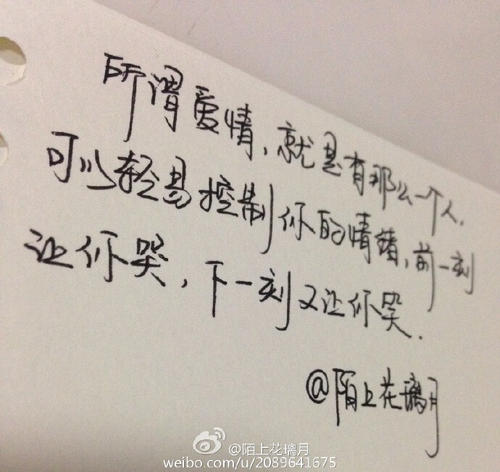 所谓爱情,就是有那么一个人.
可以轻易控制你的情绪,前一刻
让你哭,下一刻又让你哭.
@陌上花璃月
@陌上花璃月
weibo.com/u/2089641675